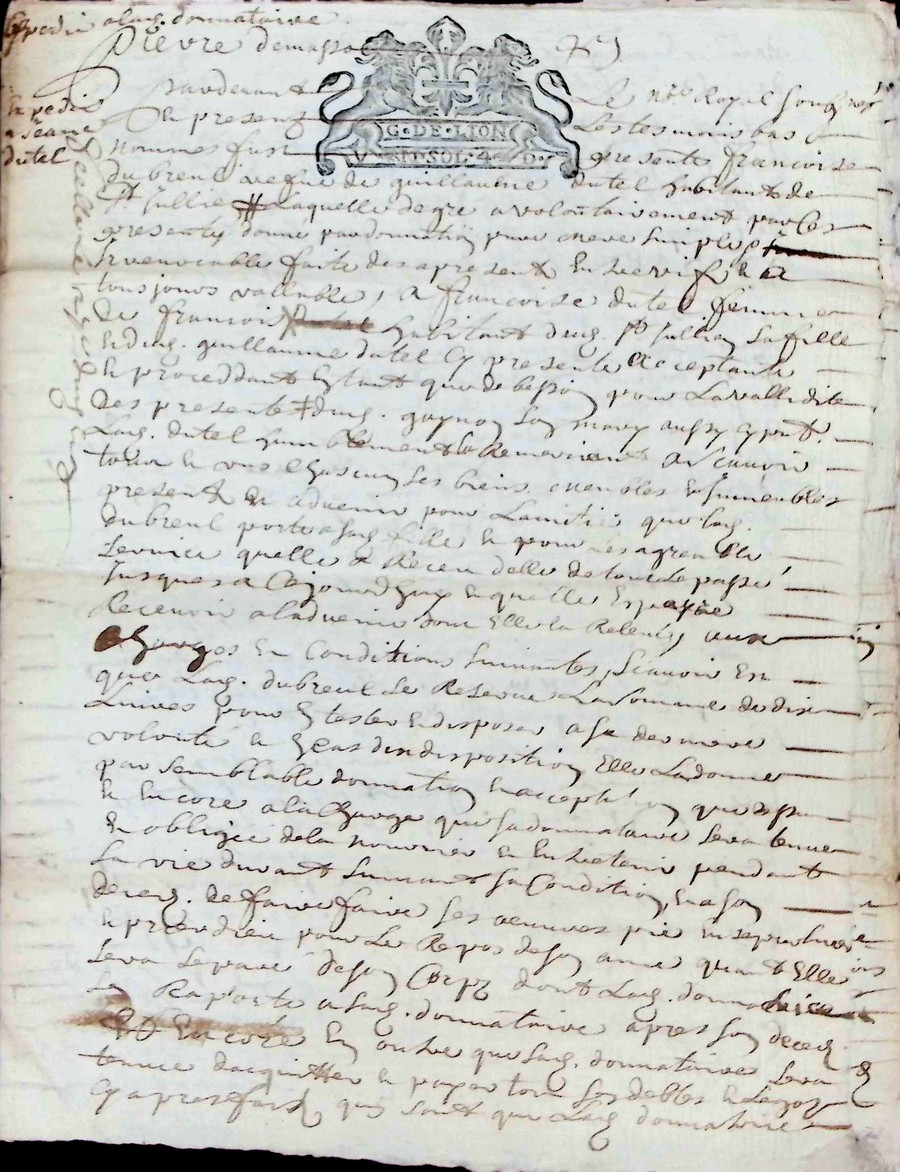 Expedie a lad. donnataire
Pierre demasso
Expedie
a Jeanne
dutel
G·DE·LION
VN·SOL·4·D·
Pardevant Le no.re Royal soubsigne
En presence Les tesmoins bas
nommes fust presente francoise
dubreul vefve de guillaume dutel habitante de
St Jullien Laquelle de gre a volontairement par Ces
presentes donne par donnation pure mere simple
Irrevocable faite des a present Entre vifs a
tousjours vallable, A francoise dutel femme
de francois habitant dud. St Jullien sa fille
Et dud. guillaume dutel Cy presente acceptante
Et proceddant Entant que de besoin pour La vallidite
des presentes dud. gaynon son mary aussy Cy pnt.
Lad. dutel humblement Le Remerciant A Scauvoir
tous Et uns Chascuns ses biens meubles Et Immeubles
presents Et advenir pour Lamitie que lad.
dubreul porte a sad. fille Et pour Les agreable
service quelle a Receu delle de tout Le passe
Jusques a Ce jourdhuy Et quelle Espere
Recevoir a ladvenir dont Elle La Relesve, aux
Charges Et Conditions suivantes, scavoir Est
que Lad. dubreul se Reserve La somme de dix
Livres pour En tester Et disposer a sa derniere
volonte Et En Cas dindisposition Elle La donne
par semblable donnation Et acceptation que dessus
Et Encore a la Charge que sa donnataire sera tenue
Et obligee de la nourrir Et Entretenir pendant
sa vie durant suivant sa Condition, Et a son
deces. de faire faire ses oeuvres pie Et sepulture
Et prier dieu pour Le Repos de son ame quant Elle
sera separe de son Corps dont Lad. donnatrice
sen Raporte a lad. donnataire apres son deces
Et Encore En outre que lad. donnataire sera
tenue dacquitter Et payer tous ses debtes Et Legats
Cy apres faits quy sont que Lad donnataire